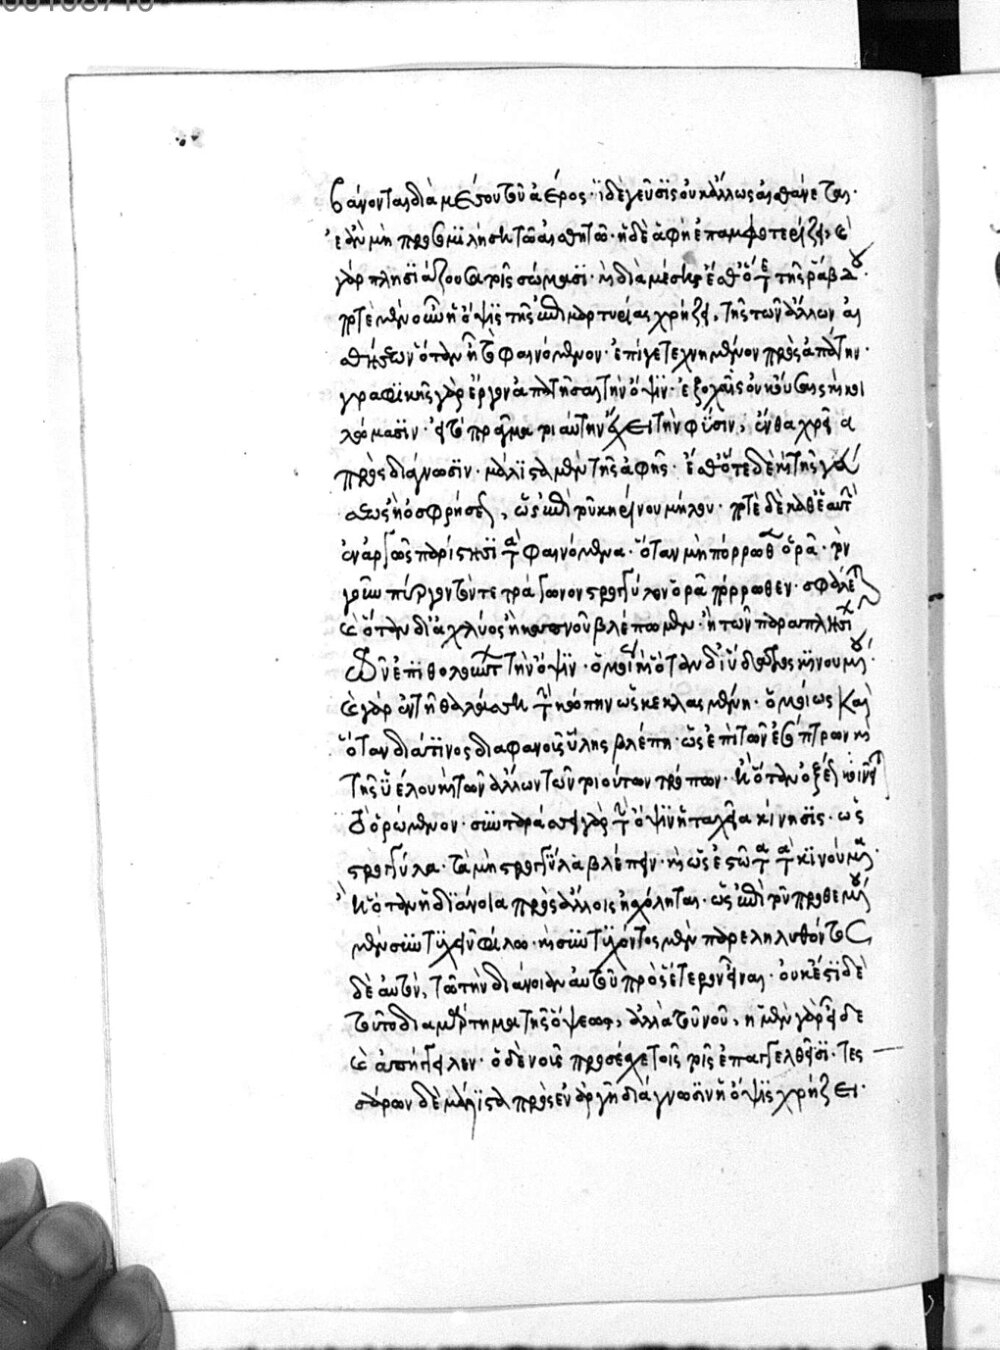 βάνονται διὰ μέσου τοῦ ἀέρος· ἡ δὲ γεῦσις οὐκ ἄλλως αἰσθάνεται·
ἐὰν μὴ προσομιλήση τῶ αἰσθητῶ· ἡ δὲ ἁφὴ ἐπαμφοτερίζει, καὶ
γὰρ πλησιάζουσα τοῖς σώμασι· καὶ διὰ μέσης ἔσθ' ὅτε τῆς ῥάβδου·
τότε μὲν οὖν ἡ ὄψις τῆς ἐπιμαρτυρίας χρήζει, τῆς τῶν ἄλλων αἰ
σθήσεων ὅταν ἦ τὸ φαινόμενον· ἐπί γε τεχνημένον πρὸς ἀπάτην·
γραφικῆς γὰρ ἔργον ἀπατῆσαι τὴν ὄψιν· ἐξοχαῖς οὐκ οὔσαις καὶ κοι
λώμασιν· εἰ τὸ πρᾶγμα τοιαύτην ἔχει τὴν φύσιν, ἔνθα χρεία
πρὸς διάγνωσιν· μάλιστα μὲν τῆς ἁφῆς· ἔσθ' ὅτε δὲ καὶ τῆς γεύ
σεως ἢ ὀσφρήσεως, ὡς ἐπὶ τοῦ κηρίνου μήλου· τότε δὲ καθ' ἑαυτὴν
ἐναργῶς παρίστησι τὰ φαινόμενα· ὅταν μὴ πόρρωθεν ὁρᾶ· τὸν
γοῦν πύργον τὸν τετράγωνον στρογγύλον ὁρᾶ πόρρωθεν· σφάλλεται
καὶ ὅταν δι' ἀχλύος ἢ καπνοῦ βλέπωμεν· ἢ τῶν παραπλησίων
τούτων ἐπιθολούντων τὴν ὄψιν· ὁμοίως καὶ ὅταν δι' ὕδατος κινουμένου·
καὶ γὰρ ἐν τῆ θαλάσση τὴν κώπην ὡς κεκλασμένην· ὁμοίως καὶ
ὅταν διά τινος διαφανοῦς ὕλης βλέπη· ὡς ἐπὶ τῶν ἐσόπτρων καὶ
τῆς ὑέλου καὶ τῶν ἄλλων τῶν τοιούτων τρόπων· καὶ ὅταν ὀξέως κινῆται
τὸ ὁρώμενον· συνταράσσει γὰρ τὴν ὄψιν ἡ ταχεῖα κίνησις· ὡς
στρογγύλα· τὰ μὴ στρογγύλα βλέπειν· καὶ ὡς ἑστῶτα τὰ κινούμενα·
καὶ ὅταν ἡ διάνοια πρὸς ἄλλοις ἠσχόληται· ὡς ἐπὶ τοῦ προθεμένου
μὲν συντυχεῖν φίλω· καὶ συντυχόντος μὲν παρεληλυθότος
δὲ αὐτόν, τῶ τὴν διάνοιαν αὐτοῦ πρὸς ἕτερον εἶναι· οὐκ ἔστι δὲ
τοῦτο διαμάρτημα τῆς ὄψεως, ἀλλὰ τοῦ νοῦ, ἡ μὲν γὰρ εἶδε
καὶ ἀπήγγειλεν· ὁ δὲ νοῦς προσέσχε τοῖς τοῖς ἐπαγγελθεῖσι· τεσ
σάρων δὲ μάλιστα πρὸς ἐναργῆ διάγνωσιν ἡ ὄψις χρήζει·